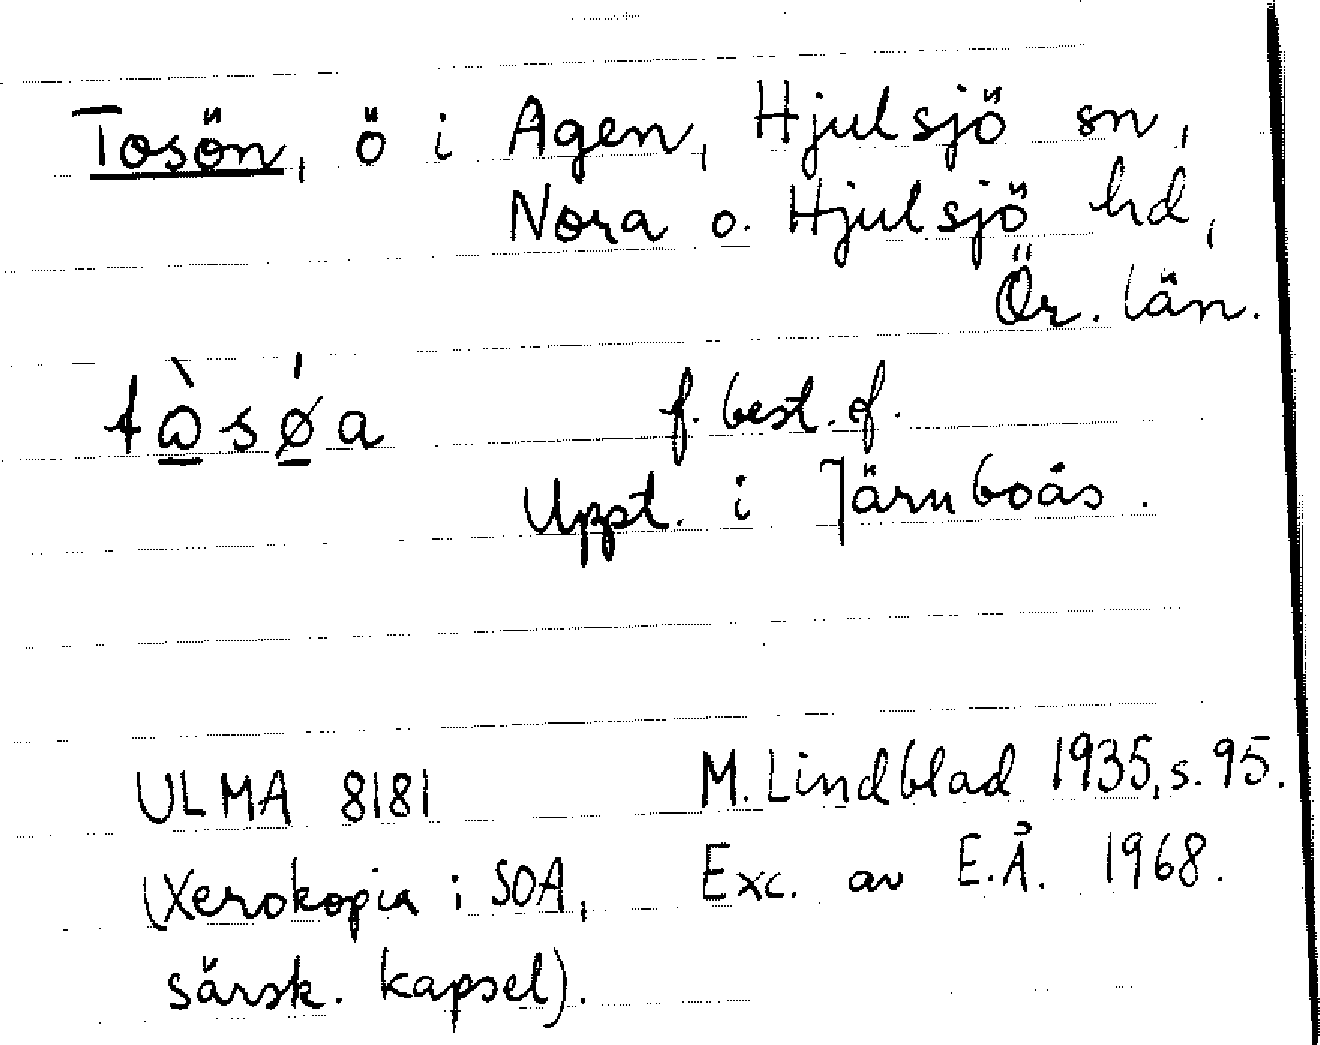 Tosön, ö i Agen, Hjulsjö sn,
Nora o. Hjulsjö hd,
Ör. län.
tὼ̲sǿ̲a f. best. f.
Uppt. i Järnboås.
ULMA 8181 M. Lindblad 1935, s. 95.
(Xerokopia i SOA, Exc. av E.Å. 1968.
särsk. kapsel).